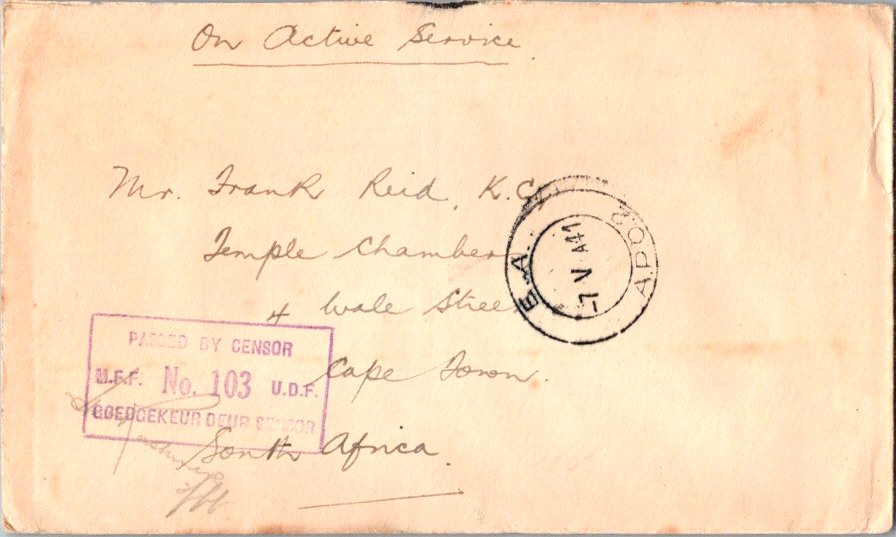 On Active Service.
Mr. Frank Reid, K.C.
Temple Chambers
4 Wale Street
Cape Town.
South Africa.
E.A. A.P.O.2
-7 V
PASSED BY CENSOR
M.F.F. No. 103 U.D.F.
GOEDGEKEUR DEUR SENSOR